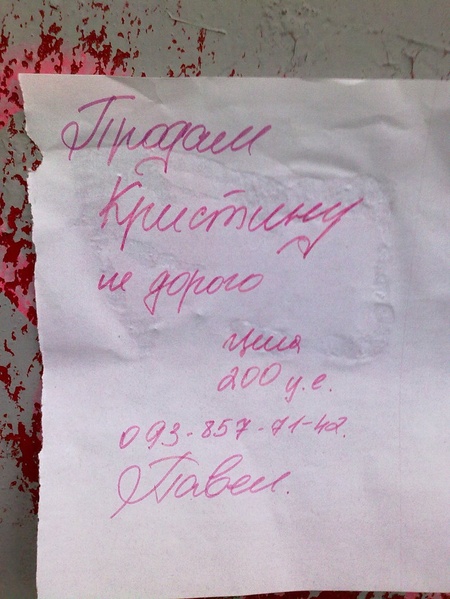 Продам
Кристину
не дорого
цена
200 у.е.
093-857-71-42.
Павел.